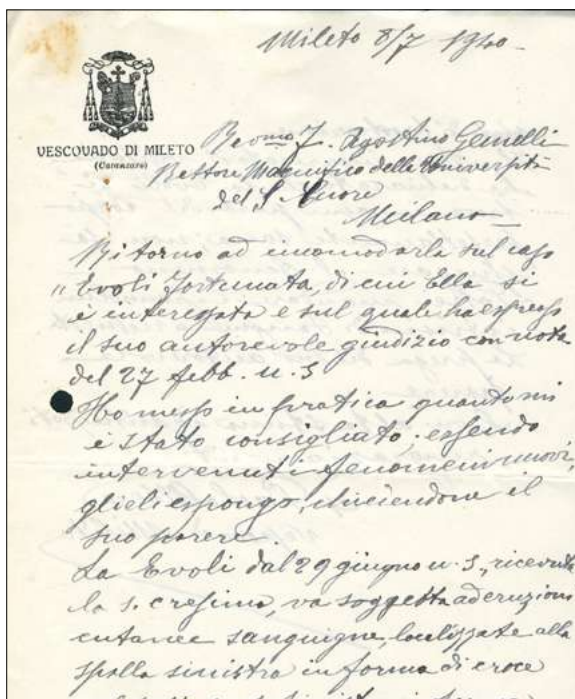 Mileto 8/7 1940-
VESCOVADO DI MILETO
(Catanzaro)
Rev.mo P. Agostino Gemelli
Rettore Magnifico della Università
del S. Cuore
Milano
Ritorno ad incomodarla sul caso
"Evoli Fortunata, di cui Ella si
è interessata e sul quale ha espresso
il suo autorevole giudizio con nota
del 27 febb. u. s
Ho messo in pratica quanto mi
è stato consigliato; essendo
intervenuti fenomeni nuovi,
glieli espongo, chiedendone il
suo parere.
La Evoli dal 29 giugno u. s., ricevuta
la s. cresima, va soggetta ad eruzioni
cutanee sanguigne, localizzate alla
spalla sinistra in forma di croce